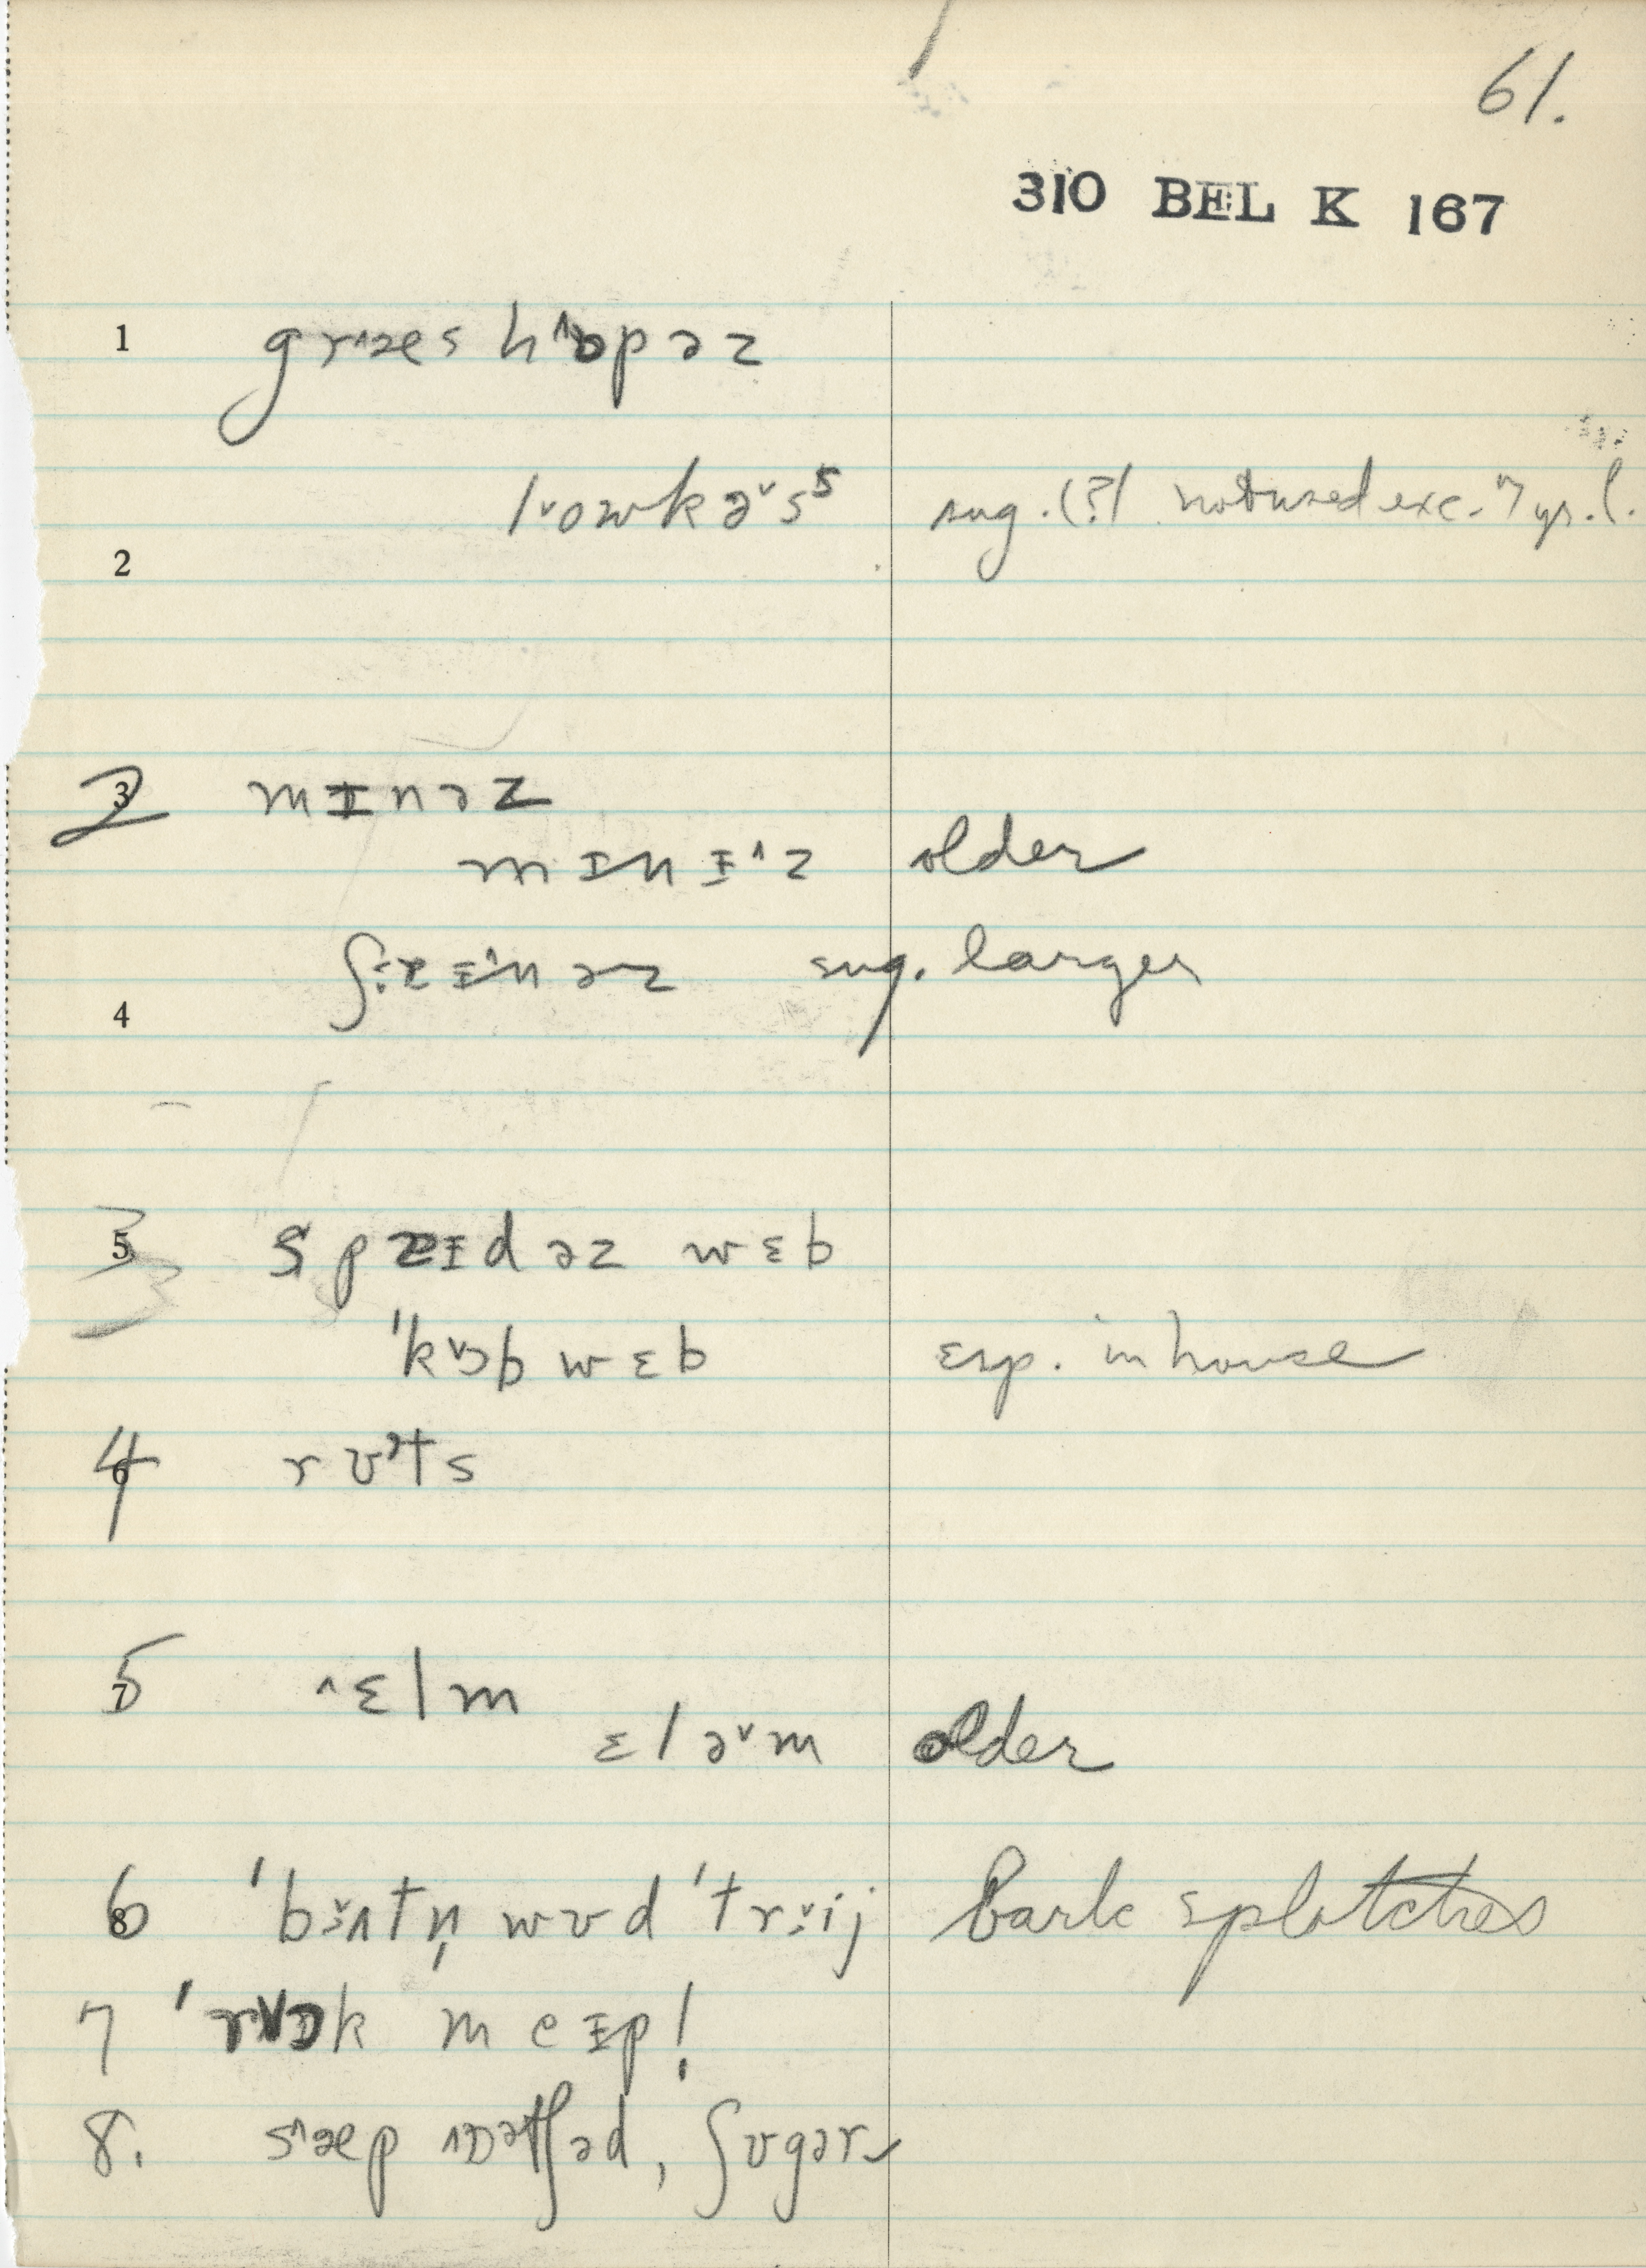 61.
310 BEL K 167
1 græs hɒpəz
lowkəs sug. (?) not used exc. 17 yr. l.
2
2 3 mɪnəz
mɪnɪz older
ʃaɪnəz sug. larger
4
3 5 spaɪdəz wɛb
'kɔbwɛb esp. in house
4 6 rʊts
5 7 ɛlm
ɛləm older
6 8 'bʌtn̩ wʊd 'trij bark splotches
7 'rɒk meɪp!
8. sæp ɒətʃəd, ʃʊgər